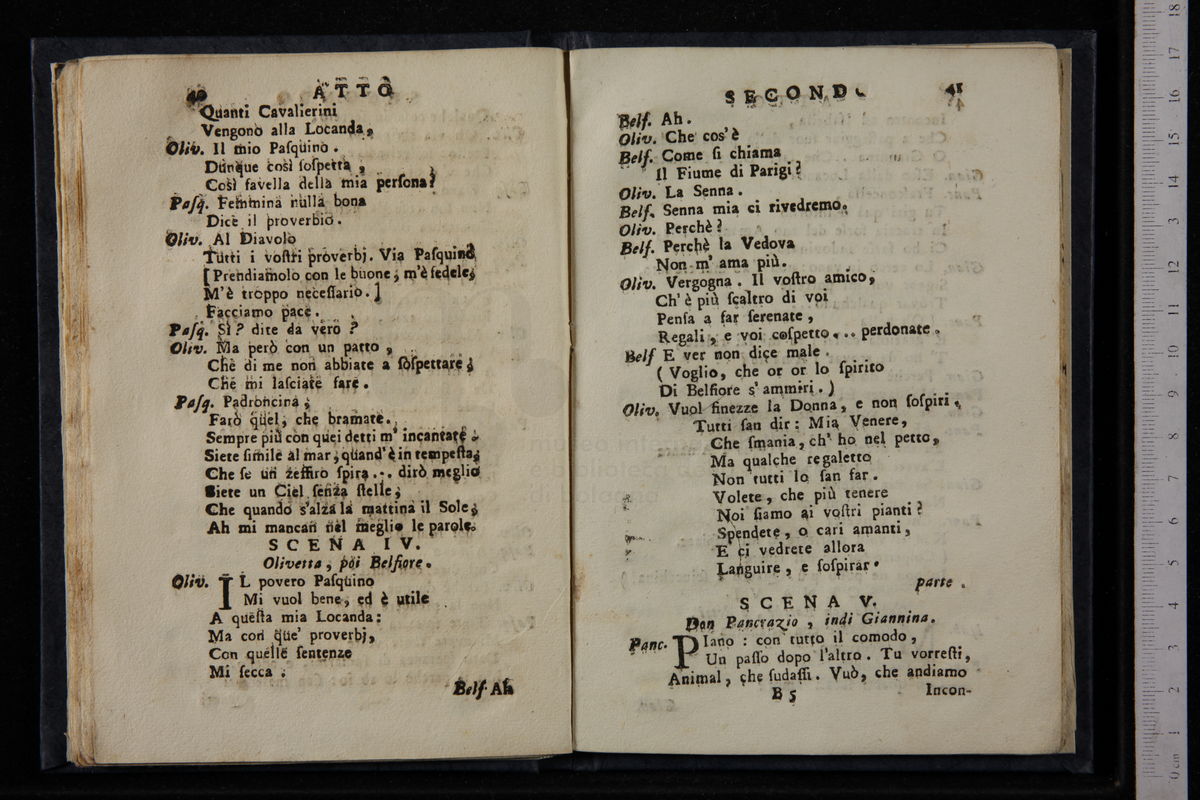 40 ATTO
Quanti Cavalierini
Vengono alla Locanda,
Oliv. Il mio Paſquino.
Dunque così ſoſpetta,
Così favella della mia perſona?
Paſq. Femmina nulla bona
Dice il proverbio.
Oliv. Al Diavolo
Tutti i voſtri proverbj. Via Paſquino
[Prendiamolo con le buone; m'è fedele;
M'è troppo neceſſario.]
Facciamo pace.
Paſq. Sì? dite da vero?
Oliv. Ma però con un patto,
Chè di me non abbiate a ſoſpettare;
Che mi laſciate fare.
Paſq. Padroncina;
Farò quel, che bramate.
Sempre più con quei detti m' incantate.
Siete ſimile al mar, quand'è in tempeſta;
Che ſe un zeffiro ſpira... dirò meglio
Siete un Ciel ſenza ſtelle;
Che quando s'alza la mattina il Sole;
Ah mi mancan nel meglio le parole.
SCENA IV.
Olivetta, poi Belfiore.
Oliv. IL povero Paſquino
Mi vuol bene, ed è utile
A queſta mia Locanda:
Ma con que' proverbj,
Con quelle ſentenze
Mi ſecca.
Belf. Ah
SECONDO 41
Belf. Ah.
Oliv. Che cos'è
Belf. Come ſi chiama
Il Fiume di Parigi?
Oliv. La Senna.
Belf. Senna mia ci rivedremo.
Oliv. Perchè?
Belf. Perchè la Vedova
Non m' ama più.
Oliv. Vergogna. Il voſtro amico,
Ch' è più ſcaltro di voi
Penſa a far ſerenate,
Regali, e voi coſpetto... perdonate.
Belf E ver non dice male.
(Voglio, che or or lo ſpirito
Di Belfiore s' ammiri.)
Oliv. Vuol finezze la Donna, e non ſoſpiri.
Tutti ſan dir: Mia Venere,
Che ſmania, ch' ho nel petto,
Ma qualche regaletto
Non tutti lo ſan far.
Volete, che più tenere
Noi ſiamo ai voſtri pianti?
Spendete, o cari amanti,
E ci vedrete allora
Languire, e ſoſpirar.
parte.
SCENA V.
Don Pancrazio, indi Giannina.
Panc. PIano: con tutto il comodo,
Un paſſo dopo l'altro. Tu vorreſti,
Animal, che ſudaſſi. Vuò, che andiamo
B 5 Incon-